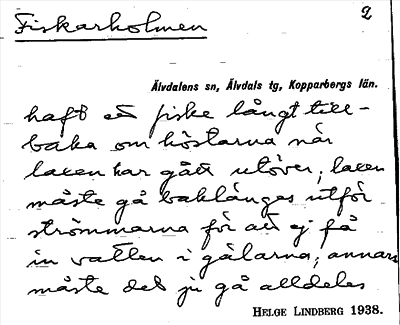 Fiskarholmen
2
Älvdalens sn, Älvdals tg, Kopparbergs län.
haft ett fiske långt till-
baka om höstarna när
laxen har gått utöver, laxen
måste gå baklänges utför
strömmarna för att ej få
in vatten i gälarna, annars
måste det ju gå alldeles
HELGE LINDBERG 1938.